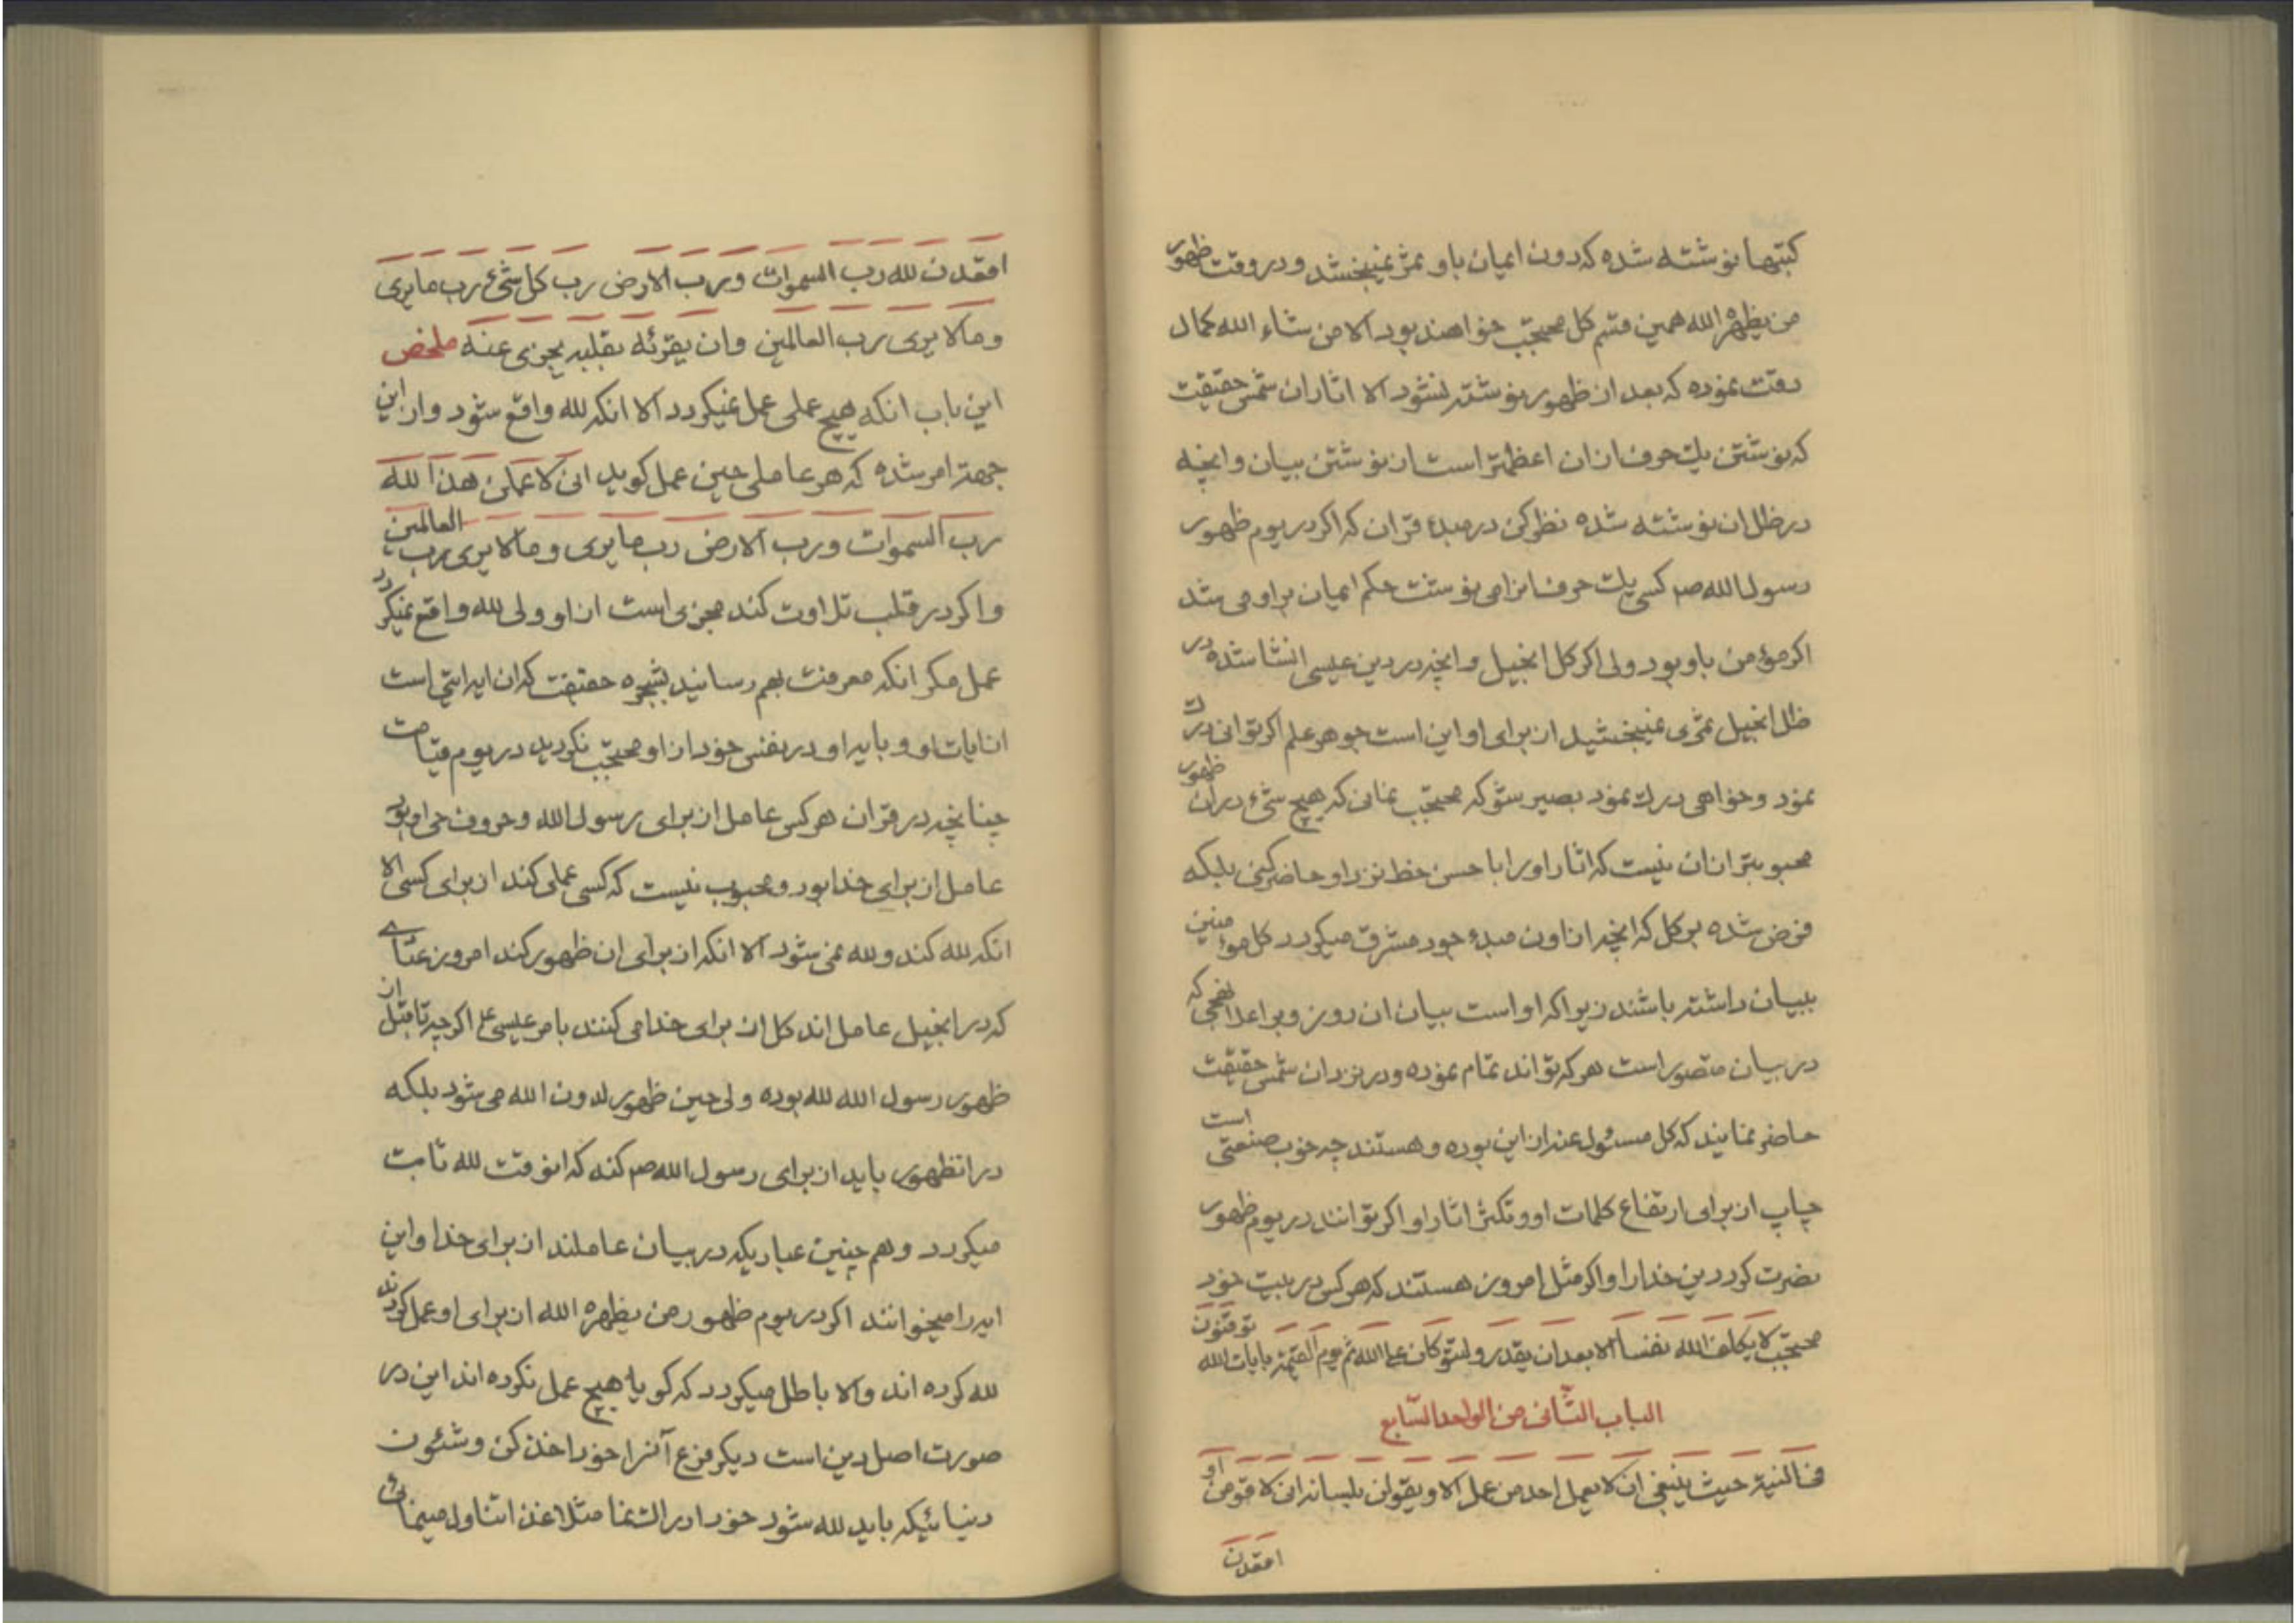 کتبها نوشته شده که دون ایمان باو ثمر نمیبخشد و در وقت ظهور
من یظهره الله همین قسم کل محتجب خواهند بود الا من شاء الله کمال
دقت نموده که بعد از ظهور نوشته نشود الا اثار ان شمس حقیقت
که نوشتن یک حرف از ان اعظمتر است از نوشتن بیان و انچه
در ظل ان نوشته شده نظر کن در مبدء قران که اکر در یوم ظهور
رسول الله صم کسی یک حرف انرا می نوشت حکم ایمان بر او می شد
اکر مؤمن باو بود ولی اکر کل انجیل و انچه در دین عیسی انشا شده در
ظل انجیل ثمری نمیبخشید از برای او این است جوهر علم اکر توانی درک
نمود و خواهی درک نمود بصیر شو که محتجب نمانی که هیچ شیء در ان ظهور
محبوبتر از ان نیست که اثار او را با حسن خط نزد او حاضر کنی بلکه
فرض شده بر کل که انچه از ان مبدء جود مشرق میکردد کل مؤمنین
ببیان داشته باشند زیرا که او است بیان ان روز و بر اعلا نهجی که
در بیان متصور است هر که تواند تمام نموده و در نزد ان شمس حقیقت
حاضر نمایند که کل مسئول عنه از این بوده و هستند چه خوب صنعتی است
چاپ از برای ارتفاع کلمات او و تکثر اثار او اکر توانند در یوم ظهور
نصرت کرد دین خدا را و اکر مثل امروز هستند که هر کس در بیت خود
محتجب لا یکلف الله نفسا الا بعد ان یقدر ولتتوکلن علی الله ثم یوم القیمة بایات الله توقنون
الباب الثانی من الواحد السابع
فی النیة حیث ینبغی ان لا یعمل احد من عمل الا و یقولن بلسانه انی لاقومن او
اقعدن
اقعدن لله رب السموات و رب الارض رب کل شیء رب ما یری
و ما لا یری رب العالمین و ان یقرئه بقلبه یجزی عنه ملخص
این باب انکه هیچ عملی عمل نمیکردد الا انکه لله واقع شود و از این
جهة امر شده که هر عاملی حین عمل کوید انی لاعملن هذا لله
رب السموات و رب الارض رب ما یری و ما لا یری رب العالمین
و اکر در قلب تلاوت کند مجزی است از او ولی لله واقع نمیکردد
عمل مکر انکه معرفت بهم رسانید بشجره حقیقت که ان ایه ایتی است
از ایات او و بایه او در نفس خود از او محتجب نکردید در یوم قیامت
چنانچه در قران هر کس عامل از برای رسول الله و حروف حی او بود
عامل از برای خدا بود و محبوب نیست که کسی عملی کند از برای کسی الا
انکه لله کند و لله نمی شود الا انکه از برای ان ظهور کند امروز عبادی
که در انجیل عامل اند کل از برای خدا می کنند بامر عیسی ع اکر چه تا قبل از
ظهور رسول الله لله بوده ولی حین ظهور لدون الله می شود بلکه
در انظهور باید از برای رسول الله صم کند که انوقت لله ثابت
میکردد و هم چنین عبادیکه در بیان عاملند از برای خدا و این
ایه را میخوانند اکر در یوم ظهور من یظهره الله از برای او عمل کردند
لله کرده اند و الا باطل میکردد که کویا هیچ عمل نکرده اند این در
صورت اصل دین است دیکر فرع آنرا خود اخذ کن و شئون
دنیائیکه باید لله شود خود ادراک نما مثلا غذا تناول مینمائی